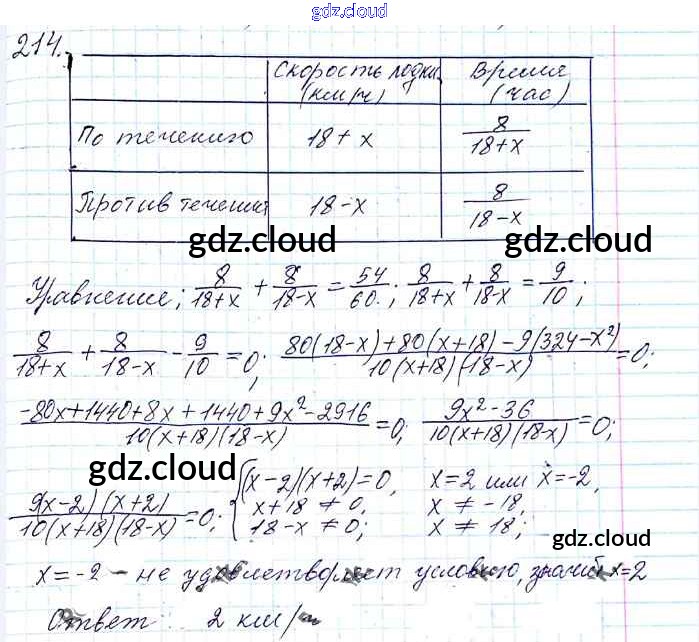 gdz.cloud
214.
Скорость лодки (км/ч) Время (час)
По течению 18+x 8/18+x
Против течения 18-x 8/18-x
gdz.cloud gdz.cloud
Уравнение; 8/18+x + 8/18-x = 54/60; 8/18+x + 8/18-x = 9/10;
8/18+x + 8/18-x - 9/10 = 0; 80(18-x)+80(x+18)-9(324-x²)/10(x+18)(18-x) = 0;
-80x+1440+8x+1440+9x²-2916/10(x+18)(18-x) = 0; 9x²-36/10(x+18)(18-x) = 0;
gdz.cloud
9(x-2)(x+2)/10(x+18)(18-x) = 0; { (x-2)(x+2)=0, x=2 или x=-2,
x+18≠0, x≠-18,
18-x≠0; x≠18;
gdz.cloud
x=-2 - не удовлетворяет условию, значит x=2
Ответ: 2 км/ч